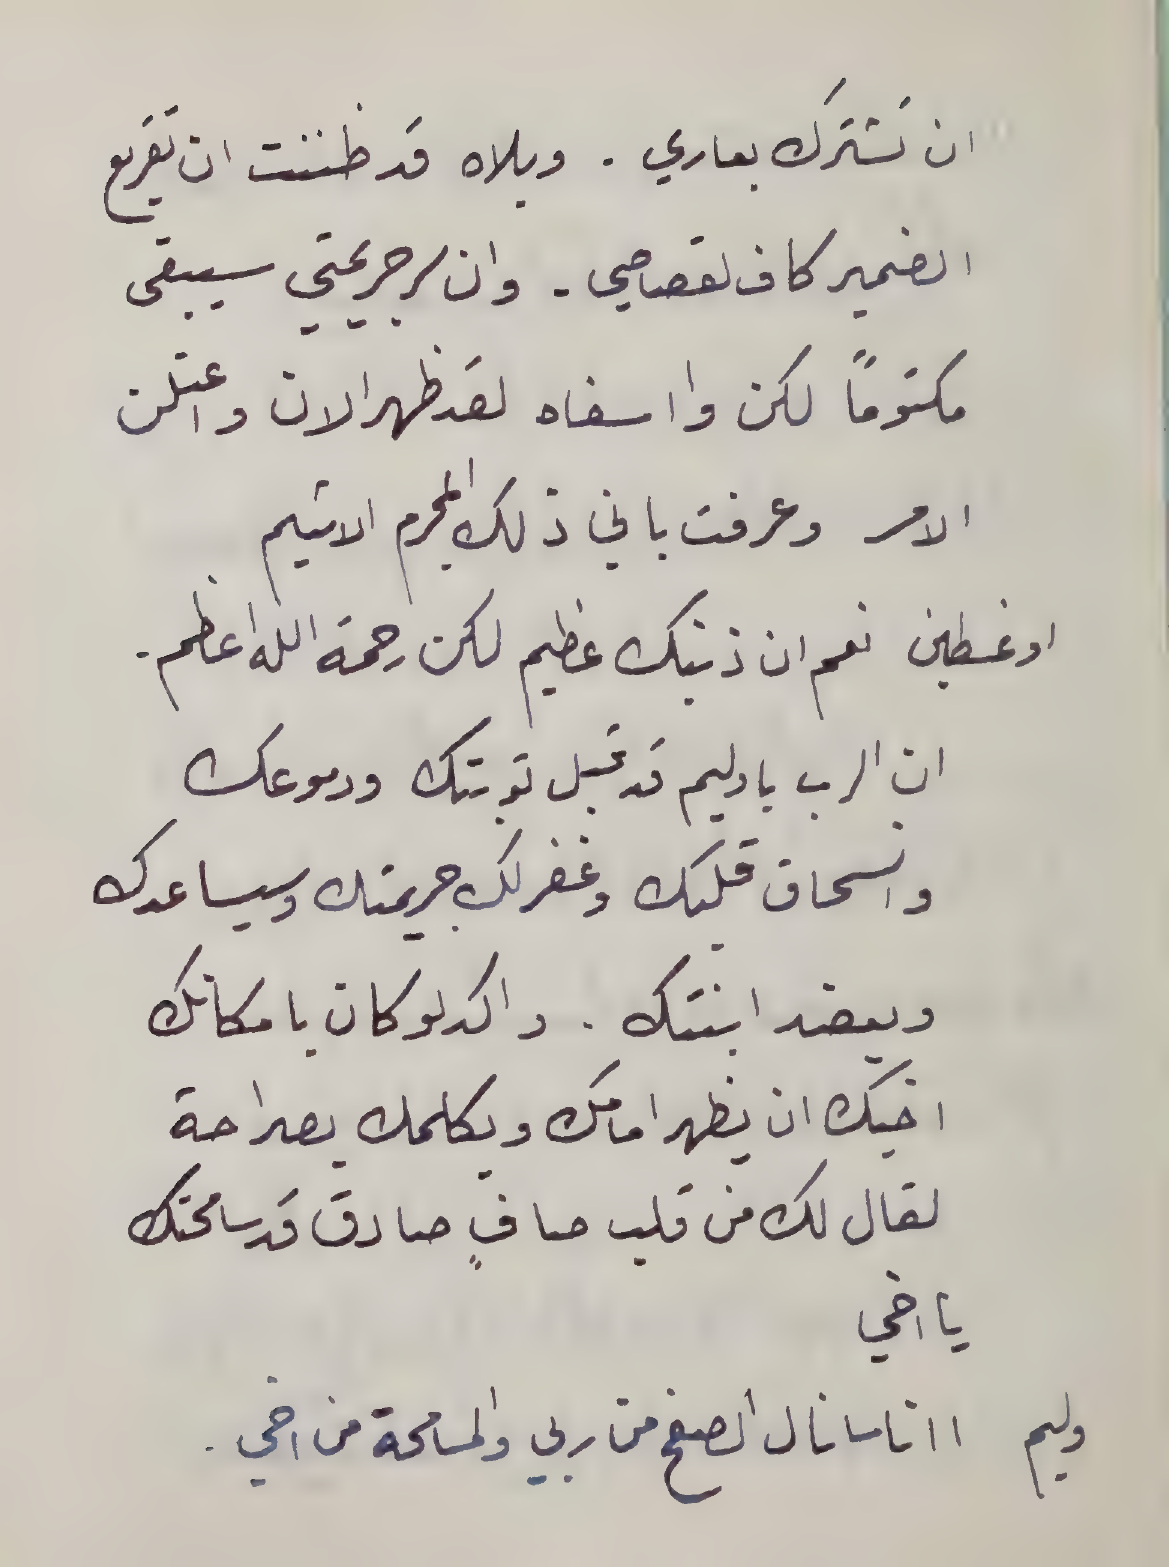 ان تشترك بعاري . ويلاه قد ظننت ان تقريع
الضمير كاف لقصاصي - وان سر جريمتي سيبقى
مكتومًا لكن وا اسفاه لقد ظهر الان واعتلن
الامر وعرفت باني ذلك المجرم الاثيم
اوغسطين نعم ان ذنبك عظيم لكن رحمة الله اعظم .
ان الرب يا وليم قد قبل توبتك ودموعك
وانسحاق قلبك وغفر لك جريمتك وسيساعدك
ويعضد ابنتك . واكد لو كان بامكانك
اخيك ان يظهر امامك ويكلمك بصراحة
لقال لك من قلب صافٍ صادق قد سامحتك
يا اخي
وليم اانا سانال الصفح من ربي والمسامحة من اخي .